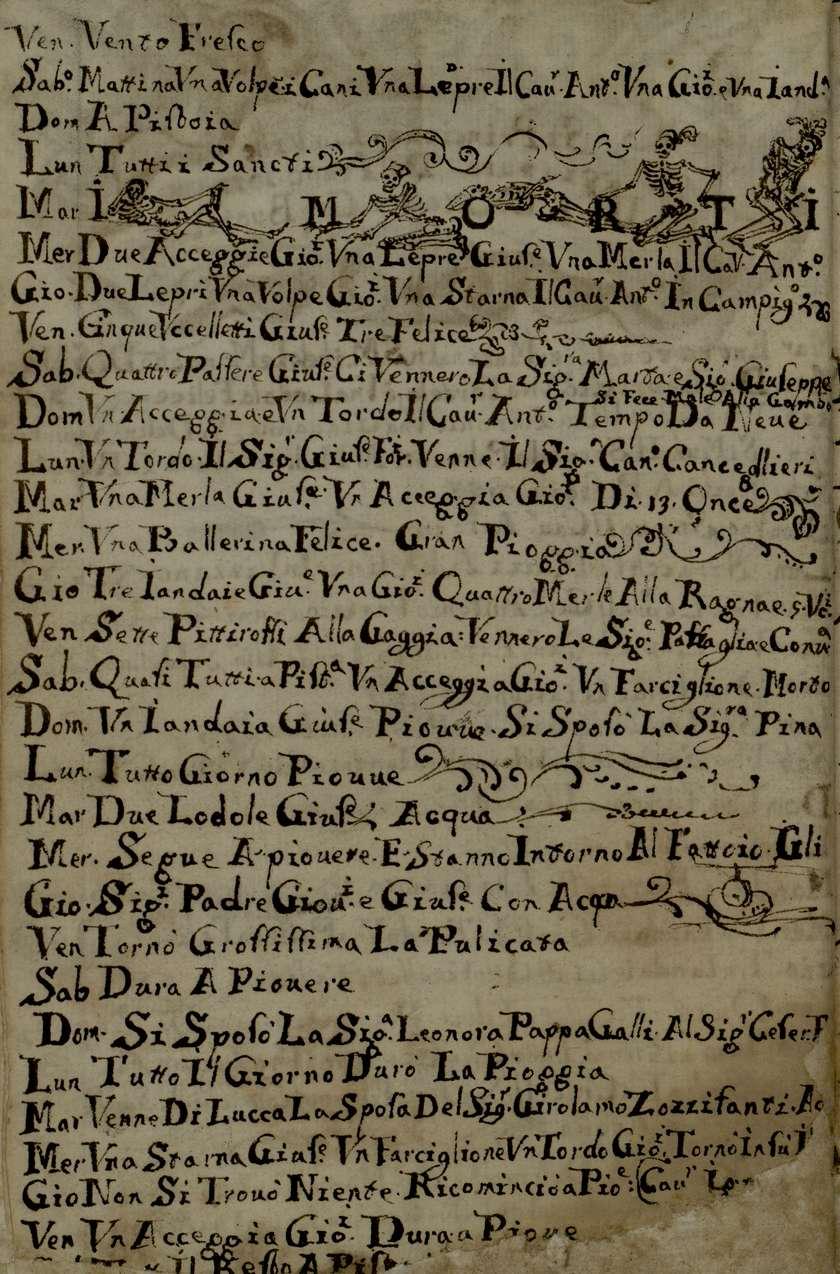 Ven. Vento Fresco
Sab.º Mattina Vna Volpe i Cani Vna Lepre Il Cau.r Ant.º Vna Gio: e Vna Iand.ª
Dom A Pistoia
Lun Tutti i Sancti
Mar I MORTI
Mer Due Acceggie Gio: Vna Lepre Gius.e Vna Merla Il Cav.r Ant.º
Gio. Due Lepri Vna Volpe Gio: Vna Starna Il Cau.r Ant.º In Campig.º
Ven. Cinque Vccelletti Gius.e Tre Felice
Sab. Quattro Passere Gius.e Ci Vennero La Sig.ra Marta e Sig. Giuseppe
Si Fece Male Alla Gamba
Dom Vn Acceggia e Vn Tordo Il Cau.r Ant.º Tempo Da Neue
Lun. Vn Tordo Il Sig.r Gius.e Venne Il Sig.r Can.º Canceglieri
Mar Vna Merla Gius.e Vn Acceggia Gio: Di 13. Once
Mer. Vna Ballerina Felice. Gran Pioggia
Gio Tre Iandaie Giu.e Vna Gio: Quattro Merle Alla Ragna e 5.
Ven Sette Pittirossi Alla Gaggia: Vennero Le Sig.e Passaglia e
Sab. Quasi Tutti a Pist.ª Vn Acceggia Gio: Vn Farciglione Morto
Dom. Vn Iandaia Gius.e Piouue. Si Sposò La Sig.ra Pina
Lun. Tutto Giorno Piouue
Mar Due Lodole Gius.e Acqua
Mer. Segue A piouere. E Stanno Intorno Al Fattoio Gli
Gio. Sig.r Padre Giou: e Gius.e Con Acqa
Ven Tornò Grossissima La Pulicata
Sab Dura A Piouere
Dom. Si Sposò La Sig.ª Leonora PappaGalli. Al Sig.r
Lun Tutto Il Giorno Durò La Pioggia
Mar Venne Di Lucca La Sposa Del Sig.r Girolamo Zozzifanti.
Mer Vna Starna Gius.e Vn Farciglione Vn Tordo Gio: Tornò In sù
Gio Non Si Trouò Niente. Ricominciò a Pio.e Cau.r
Ven Vn Acceggia Gio: Dura a Pioue
Il Resto A Pist.